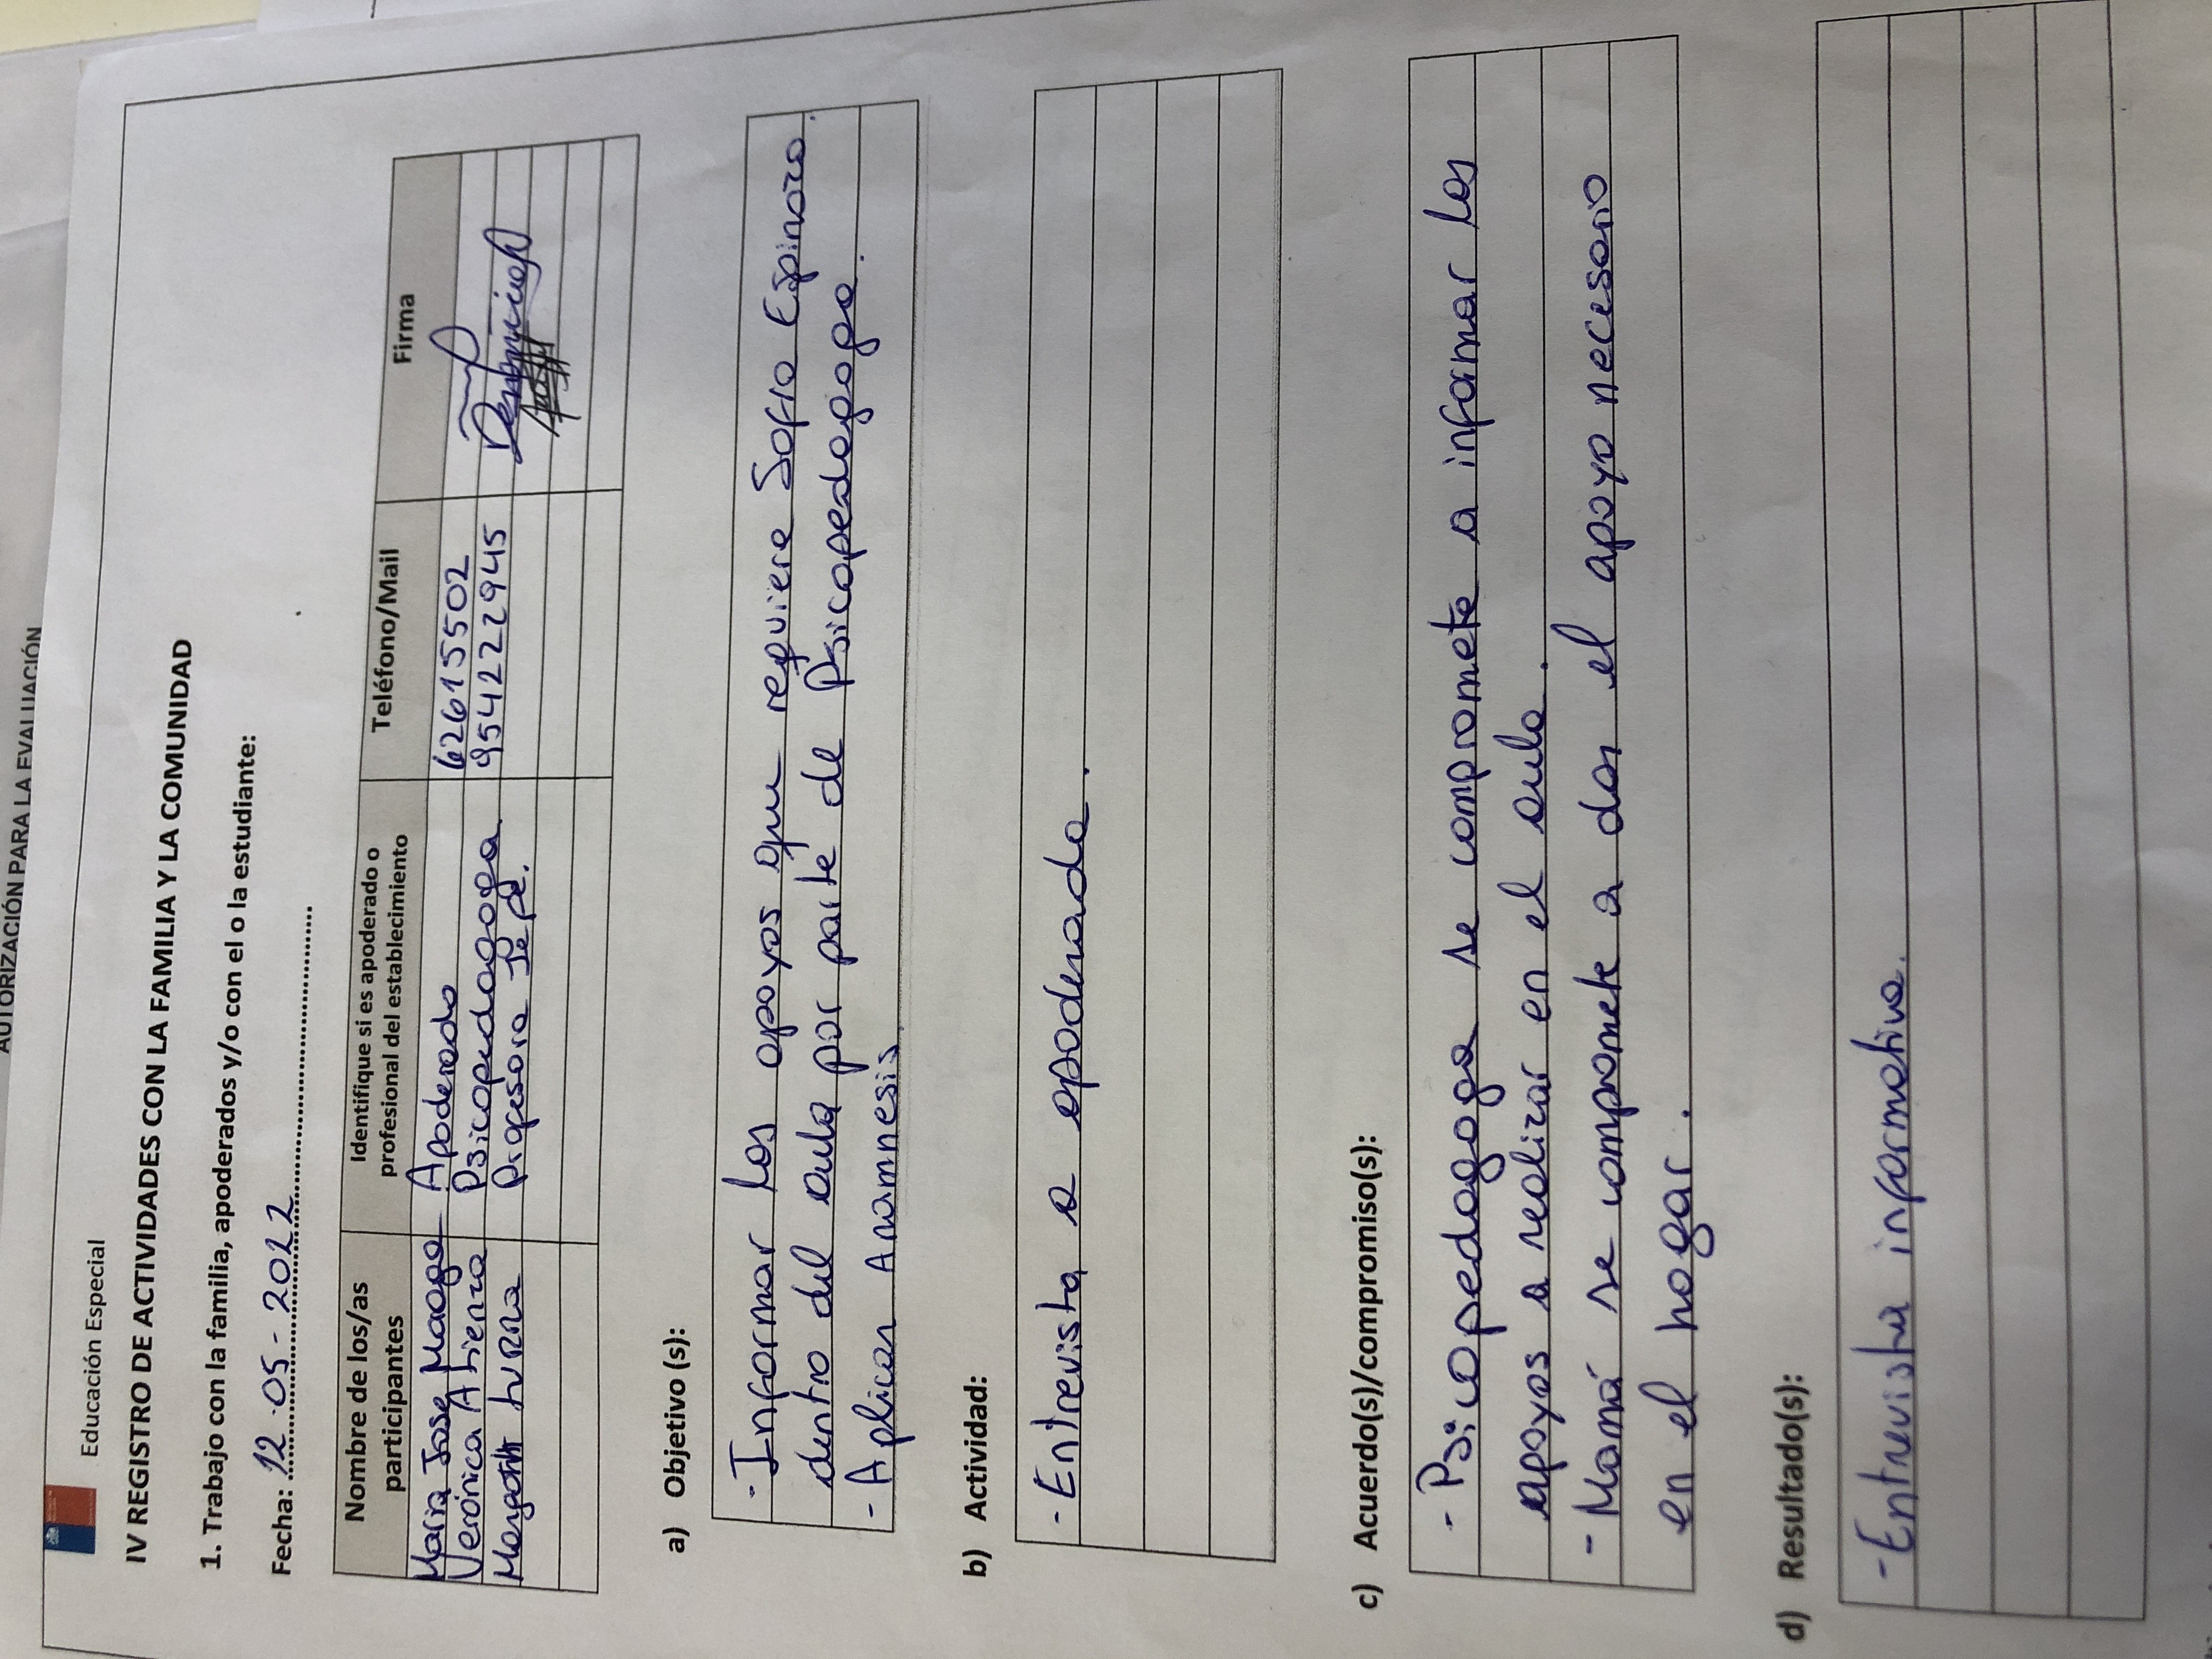 AUTORIZACIÓN PARA LA EVALUACIÓN
Educación Especial
IV REGISTRO DE ACTIVIDADES CON LA FAMILIA Y LA COMUNIDAD
1. Trabajo con la familia, apoderados y/o con el o la estudiante:
Fecha: 12-05-2022
Nombre de los/as participantes
Identifique si es apoderado o profesional del establecimiento
Teléfono/Mail
Firma
Maria Jose Apoderado 626155502
Verónica Atienza Psicopedagoga. 954222945
Profesora Jefe.
a) Objetivo (s):
- Informar los apoyos que requiere Sofia Espinoza
dentro del aula por parte de Psicopedagoga.
- Aplicar Anamnesis.
b) Actividad:
- Entrevista a apoderada.
c) Acuerdo(s)/compromiso(s):
- Psicopedagoga se compromete a informar los
apoyos a realizar en el aula.
- Mamá se compromete a dar el apoyo necesario
en el hogar.
d) Resultado(s):
- Entrevista informativa.